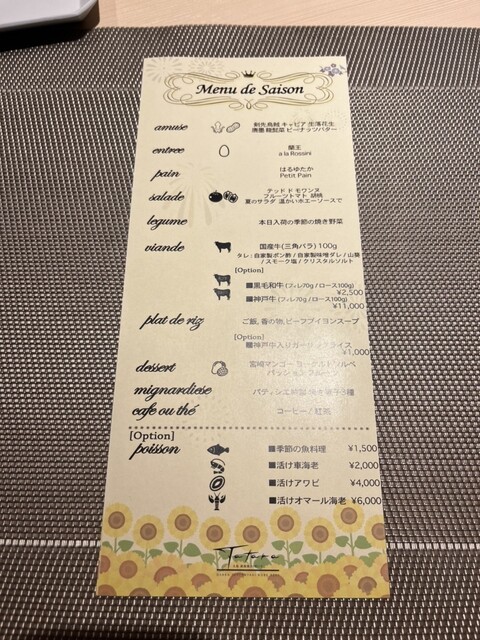 Menu de Saison
amuse
剣先烏賊 キャビア 生落花生
唐墨 雑賀菜 ピーナッツバター
entree
蘭王
a la Rossini
pain
はるゆたか
Petit Pain
salade
テッド ド モワンヌ
フルーツトマト 胡桃
夏のサラダ 温かいホエーソースで
legume
本日入荷の季節の焼き野菜
viande
国産牛(三角バラ) 100g
タレ : 自家製ポン酢 / 自家製味噌ダレ / 山葵
/ スモーク塩 / クリスタルソルト
[Option]
■黒毛和牛 (フィレ70g /ロース100g)
¥2,500
■神戸牛 (フィレ70g /ロース100g)
¥11,000
plat de riz
ご飯, 香の物, ビーフブイヨンスープ
[Option]
■神戸牛入りガーリックライス
¥1,000
dessert
宮崎マンゴー ヨーグルトソルベ
パッションフルーツ
mignardiese
パティシエ特製 焼き菓子3種
cafe ou thé
コーヒー / 紅茶
[Option]
poisson
■季節の魚料理 ¥1,500
■活け車海老 ¥2,000
■活けアワビ ¥4,000
■活けオマール海老 ¥6,000